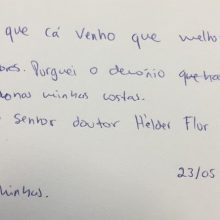 que cá venho que melho
ores. Purguei o demónio que ha
nas minhas costas.
senhor doutor Hélder Flor
23/05
minhas.